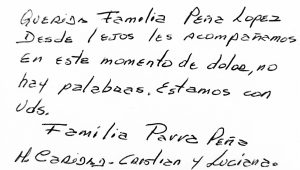 Querida Familia Peña Lopez
Desde lejos les acompañamos
En este momento de dolor, no
hay palabras. Estamos con
Uds.
Familia Parra Peña
H. Caridad - Cristian y Luciana.